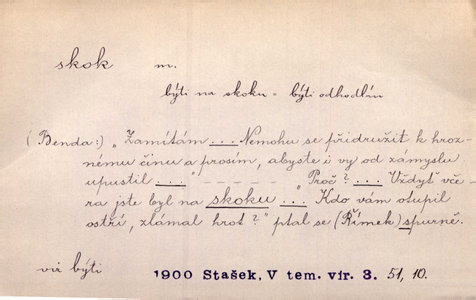 skok m.
býti na skoku = býti odhodlán
(Benda:) „Zamítám ... Nemohu se přidružit k hroz-
nému činu a prosím, abyste i vy od zámyslu
upustil ...“ – – – – – – „Proč? ... Vždyť vče-
ra jste byl na skoku ... Kdo vám otupil
ostří, zlámal hrot?“ ptal se (Římek) spurně.
viz býti 1900 Stašek, V tem. vír. 3. 51, 10.